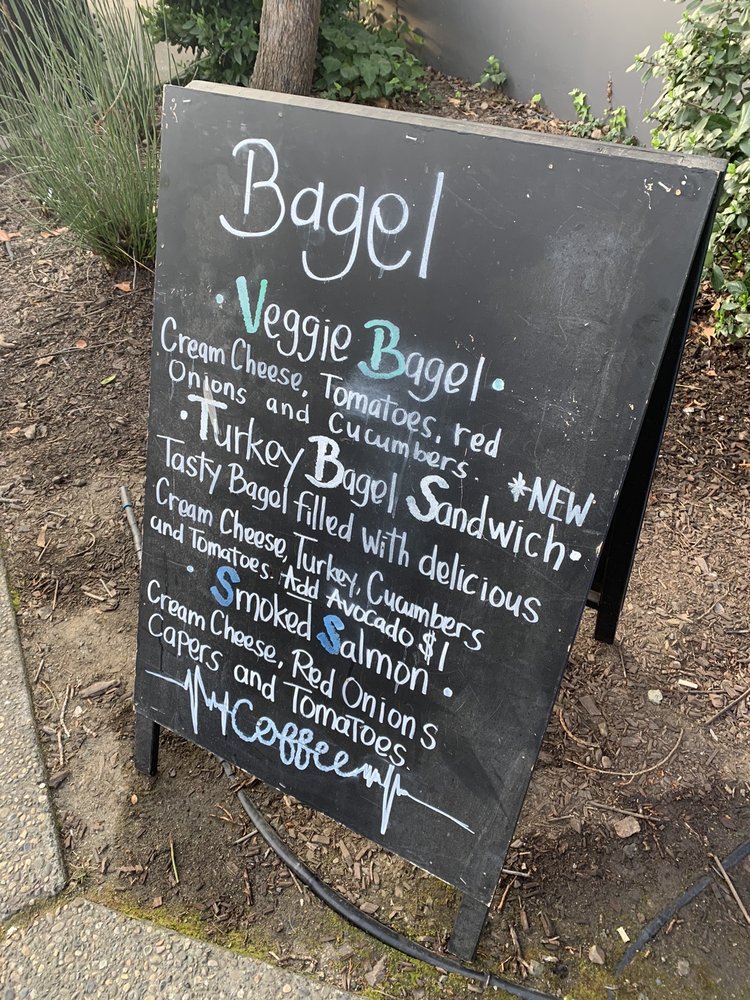 Bagel
• Veggie Bagel •
Cream Cheese, Tomatoes, red
Onions and Cucumbers.
*NEW
• Turkey Bagel Sandwich •
Tasty Bagel filled with delicious
Cream Cheese, Turkey, Cucumbers
and Tomatoes. Add Avocado $1
• Smoked Salmon •
Cream Cheese, Red Onions
Capers and Tomatoes.
Coffee